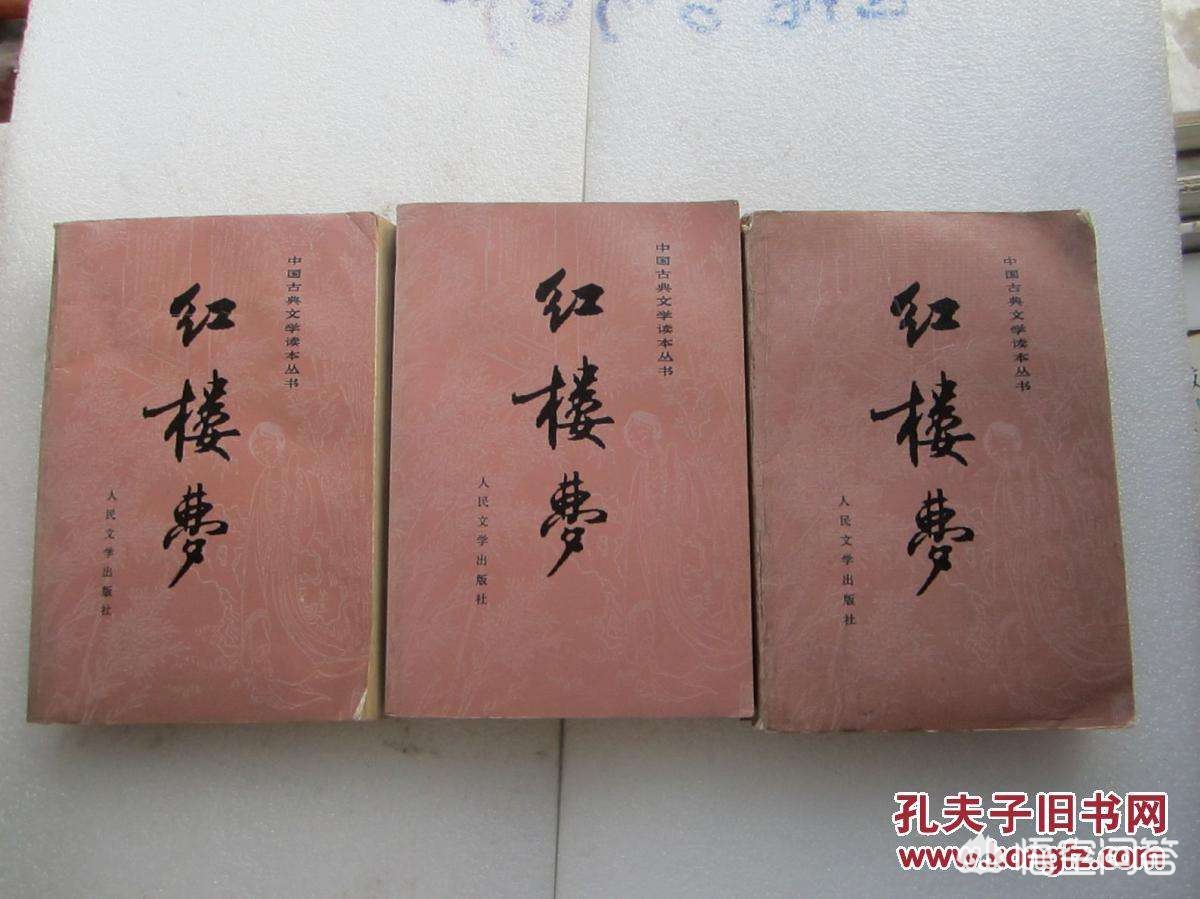 中国古典文学读本丛书
红楼梦
人民文学出版社
中国古典文学读本丛书
红楼梦
人民文学出版社
中国古典文学读本丛书
红楼梦
人民文学出版社
孔夫子旧书网
www.kongfz.com
悟空问答